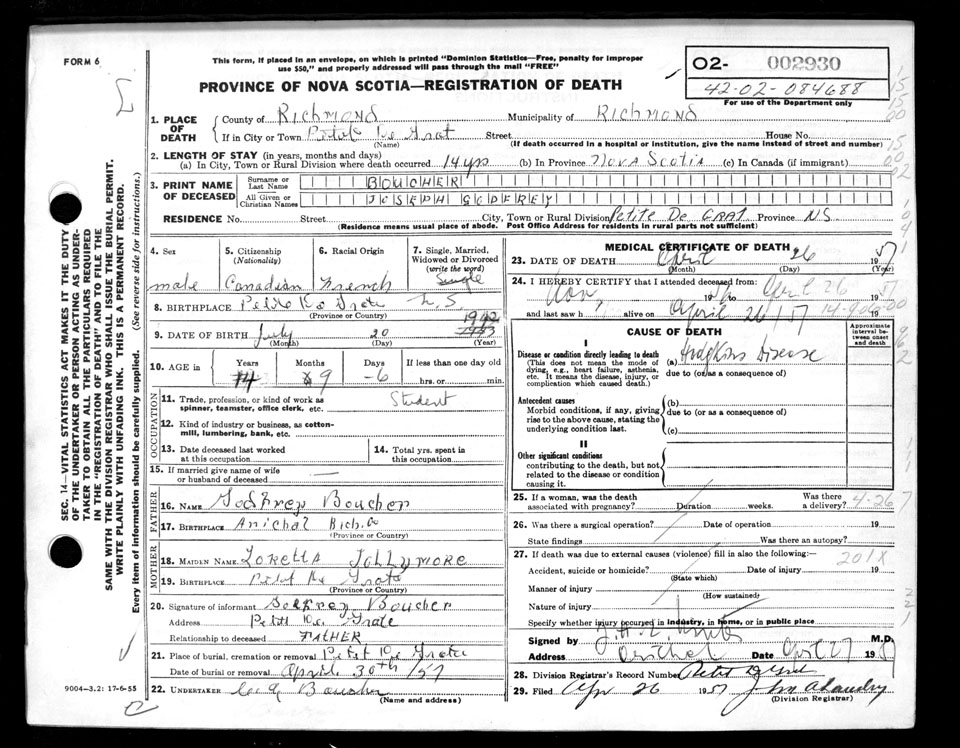 FORM 6
This form, if placed in an envelope, on which is printed "Dominion Statistics—Free, penalty for improper
use $50," and properly addressed will pass through the mail "FREE"
PROVINCE OF NOVA SCOTIA—REGISTRATION OF DEATH
O2- 002930
42-02-084688
For use of the Department only
1. PLACE OF DEATH
County of RICHMOND Municipality of RICHMOND
If in City or Town Petit De Grat Street House No.
(Name) (If death occurred in a hospital or institution, give the name instead of street and number)
2. LENGTH OF STAY (in years, months and days)
(a) In City, Town or Rural Division where death occurred 14 yrs (b) In Province Nova Scotia (c) In Canada (if immigrant)
3. PRINT NAME OF DECEASED
Surname or Last Name BOUCHER
All Given or Christian Names JOSEPH GODFREY
RESIDENCE No. Street City, Town or Rural Division Petite De GRAT Province NS
(Residence means usual place of abode. Post Office Address for residents in rural parts not sufficient)
4. Sex male
5. Citizenship (Nationality) Canadian
6. Racial Origin French
7. Single, Married, Widowed or Divorced (write the word) Single
8. BIRTHPLACE Petit De Grate N.S
(Province or Country)
9. DATE OF BIRTH July 20 1942 1943
(Month) (Day) (Year)
10. AGE in Years 14 Months 8 9 Days 6 If less than one day old hrs. or min.
OCCUPATION
11. Trade, profession, or kind of work as spinner, teamster, office clerk, etc. Student
12. Kind of industry or business, as cotton-mill, lumbering, bank, etc.
13. Date deceased last worked at this occupation
14. Total yrs. spent in this occupation
15. If married give name of wife or husband of deceased —
FATHER
16. NAME Godfrey Boucher
17. BIRTHPLACE Arichat Rich. Co
(Province or Country)
MOTHER
18. MAIDEN NAME Loretta Jollymore
19. BIRTHPLACE Petit De Grate
(Province or Country)
20. Signature of informant Godfrey Boucher
Address Petit De Grate
Relationship to deceased FATHER
21. Place of burial, cremation or removal Petit De Grate
Date of burial or removal April 30th /57
22. UNDERTAKER Boucher
(Name and address)
9004—3.2: 17-6-55
SEC. 14—VITAL STATISTICS ACT MAKES IT THE DUTY
OF THE UNDERTAKER OR PERSON ACTING AS UNDER-
TAKER TO OBTAIN ALL THE PARTICULARS REQUIRED
IN THE "REGISTRATION OF DEATH" AND TO FILE THE
SAME WITH THE DIVISION REGISTRAR WHO SHALL ISSUE THE BURIAL PERMIT.
WRITE PLAINLY WITH UNFADING INK. THIS IS A PERMANENT RECORD.
Every item of information should be carefully supplied. (See reverse side for instructions.)
MEDICAL CERTIFICATE OF DEATH
23. DATE OF DEATH April 26 1957
(Month) (Day) (Year)
24. I HEREBY CERTIFY that I attended deceased from:
Nov, 19 to April 26 57
and last saw h alive on April 26/57
CAUSE OF DEATH
Approximate interval between onset and death
I
Disease or condition directly leading to death
(This does not mean the mode of dying, e.g., heart failure, asthenia, etc. It means the disease, injury, or complication which caused death.)
(a) Hodgkins Disease
due to (or as a consequence of)
Antecedent causes
Morbid conditions, if any, giving rise to the above cause, stating the underlying condition last.
(b)
due to (or as a consequence of)
(c)
II
Other significant conditions
contributing to the death, but not related to the disease or condition causing it.
25. If a woman, was the death associated with pregnancy? Duration weeks. Was there a delivery? 4-26
26. Was there a surgical operation? Date of operation 19
State findings Was there an autopsy?
27. If death was due to external causes (violence) fill in also the following:—
201X
Accident, suicide or homicide? Date of injury 19
(State which)
Manner of injury
(How sustained)
Nature of injury
Specify whether injury occurred in industry, in home, or in public place
Signed by M.D.
Address Arichat Date April 27 1957
28. Division Registrar's Record Number
29. Filed Apr 26 1957
(Division Registrar)